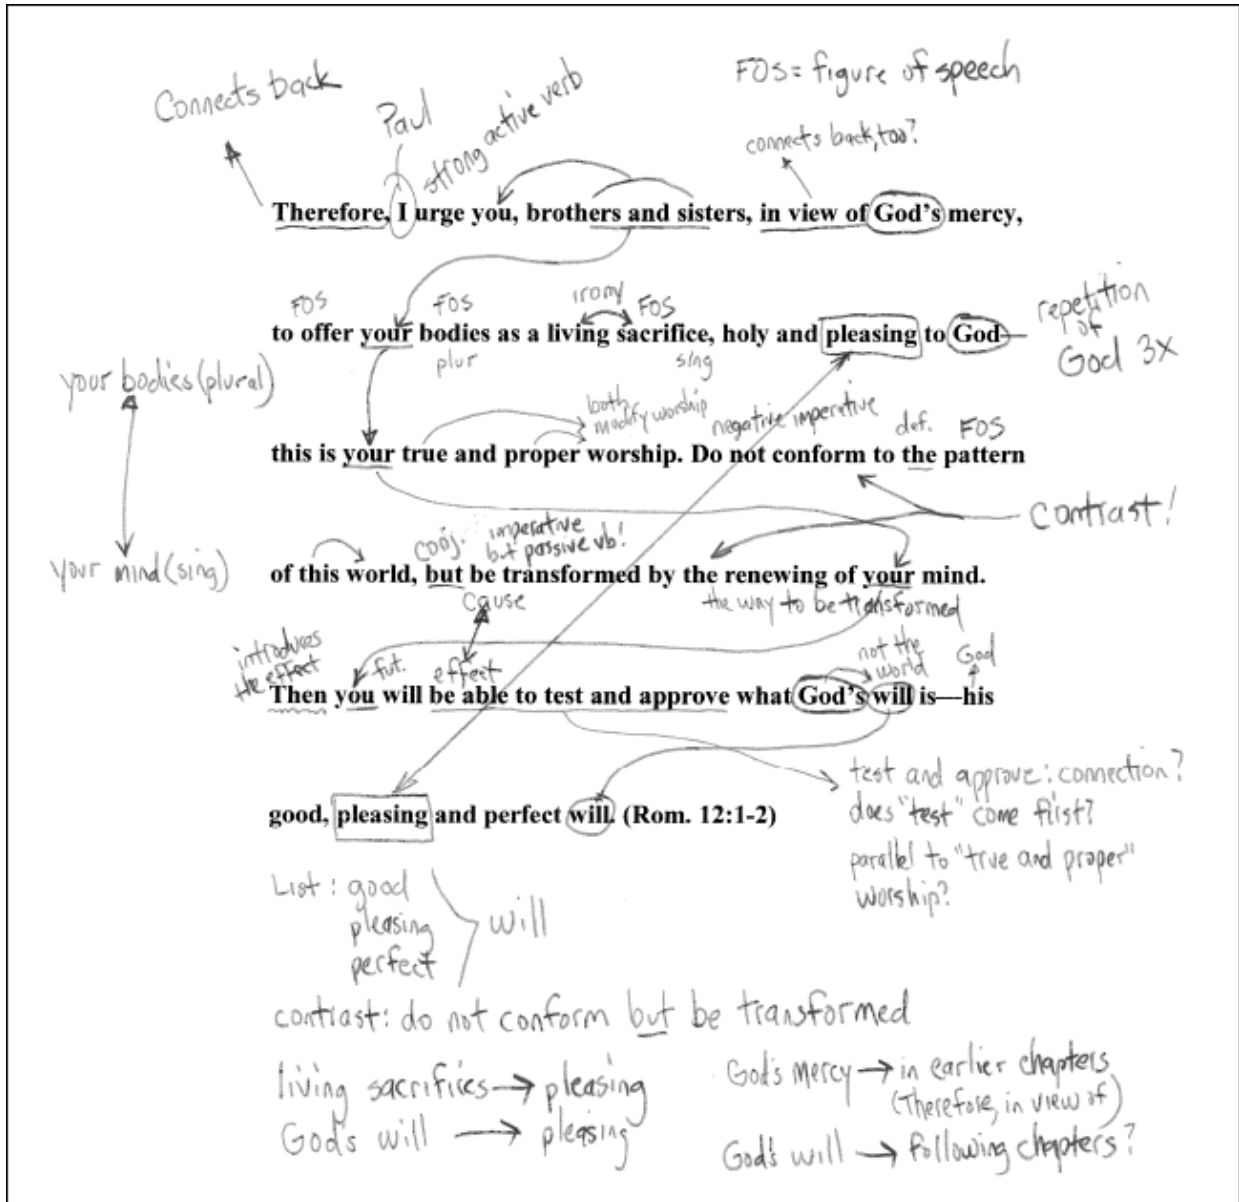 FOS = figure of speech
Connects back
Paul
strong active verb
connects back, too?
Therefore, I urge you, brothers and sisters, in view of God's mercy,
FOS FOS irony FOS
to offer your bodies as a living sacrifice, holy and pleasing to God—
plur sing
repetition
of
God 3X
your bodies (plural)
both
modify worship
negative imperative
def. FOS
this is your true and proper worship. Do not conform to the pattern
contrast!
your mind (sing)
conj. imperative
but passive vb!
of this world, but be transformed by the renewing of your mind.
cause
the way to be transformed
introduces
the effect
fut.
effect
not the
world
God
Then you will be able to test and approve what God's will is—his
test and approve: connection?
does "test" come first?
parallel to "true and proper"
worship?
good, pleasing and perfect will. (Rom. 12:1-2)
List: good
pleasing
perfect
will
contrast: do not conform but be transformed
living sacrifices → pleasing
God's will → pleasing
God's mercy → in earlier chapters
(Therefore, in view of)
God's will → following chapters?